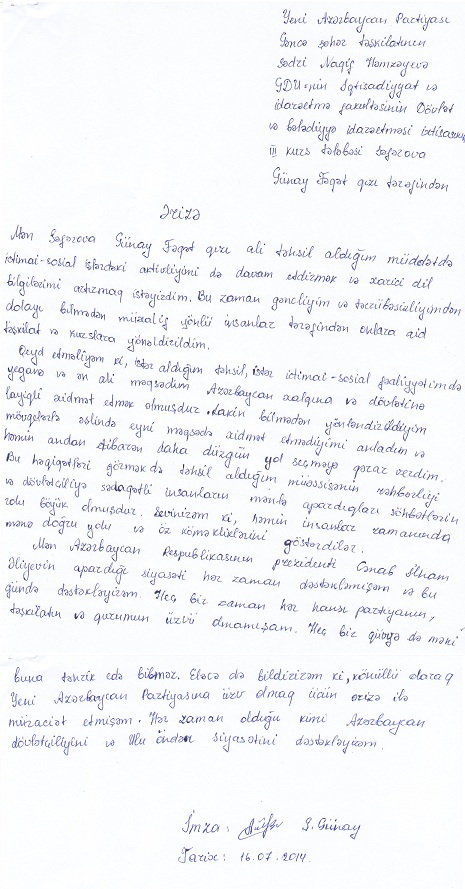 Yeni Azərbaycan Partiyası
Gəncə şəhər təşkilatının
sədri Naqif Həmzəyevə
GDU-nin İqtisadiyyat və
idarəetmə fakultəsinin Dövlət
və bələdiyyə idarəetməsi ixtisasının
III kurs tələbəsi Səfərova
Günay Fəqət qızı tərəfindən
Ərizə
Mən Səfərova Günay Fəqət qızı ali təhsil aldığım müddətdə
ictimai-sosial işlərdəki aktivliyimi də davam etdirmək və xarici dil
biliglərimi artırmaq istəyirdim. Bu zaman gəncliyim və təcrübəsizliyimdən
dolayı bilmədən müxalif yönlü insanlar tərəfindən onlara aid
təşkilat və kurslara yönəldirildim.
Qeyd etməliyəm ki, istər aldığım təhsil, istər ictimai-sosial fəaliyyətimdə
yeganə və ən ali məqsədim Azərbaycan xalqına və dövlətinə
layiqli xidmət etmək olmuşdur. Lakin bilmədən yönləndirildiyim
mövqelərlə əslində eyni məqsədə xidmət etmədiyimi anladım və
həmin andan etibarən daha düzgün yol seçməyə qərar verdim.
Bu həqiqətləri görməkdə təhsil aldığım müəssisənin rəhbərliyi
və dövlətçiliyə sədaqətli insanların mənlə apardıqları söhbətlərin
rolu böyük olmuşdur. Sevinirəm ki, həmin insanlar zamanında
mənə doğru yolu və öz köməkliklərini göstərdilər.
Mən Azərbaycan Respublikasının prezidenti Cənab İlham
Əliyevin apardığı siyasəti hər zaman dəstəkləmişəm və bu
gündə dəstəkləyirəm. Heç bir zaman hər hansı partiyanın,
təşkilatın və qurumun üzvü olmamışam. Heç bir qüvvə də məni
buna təhrik edə bilməz. Eləcə də bildirirəm ki, könüllü olaraq
Yeni Azərbaycan Partiyasına üzv olmaq üçün ərizə ilə
müraciət etmişəm. Hər zaman olduğu kimi Azərbaycan
dövlətçiliyini və Ulu öndər siyasətini dəstəkləyirəm.
İmza: S. Günay
Tarix: 16.07.2014.